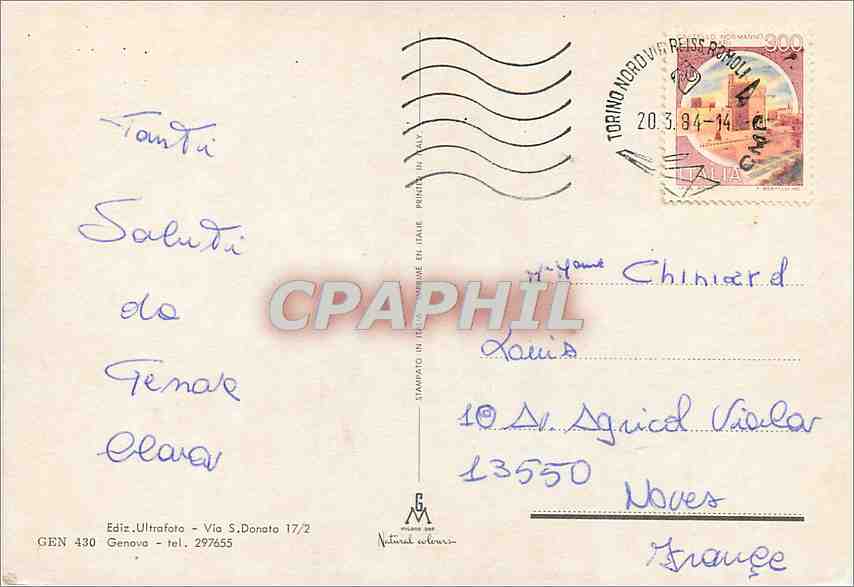 Tanti
Saluti
da
Genova
Clara
Ediz. Ultrafoto - Via S. Donato 17/2
GEN 430 Genova - tel. 297655
STAMPATO IN ITALIA IMPRIMÉ EN ITALIE PRINTED IN ITALY
GM
MILANO
Natural colours
TORINO NORD VIA REISS. ROMOLI
20.3.84-14
CASTELLO NORMANNO
300
ITALIA
CPAPHIL
Mr Mame Chiniard
Louis
10 Av. Agricol Viala
13550
Noves
France